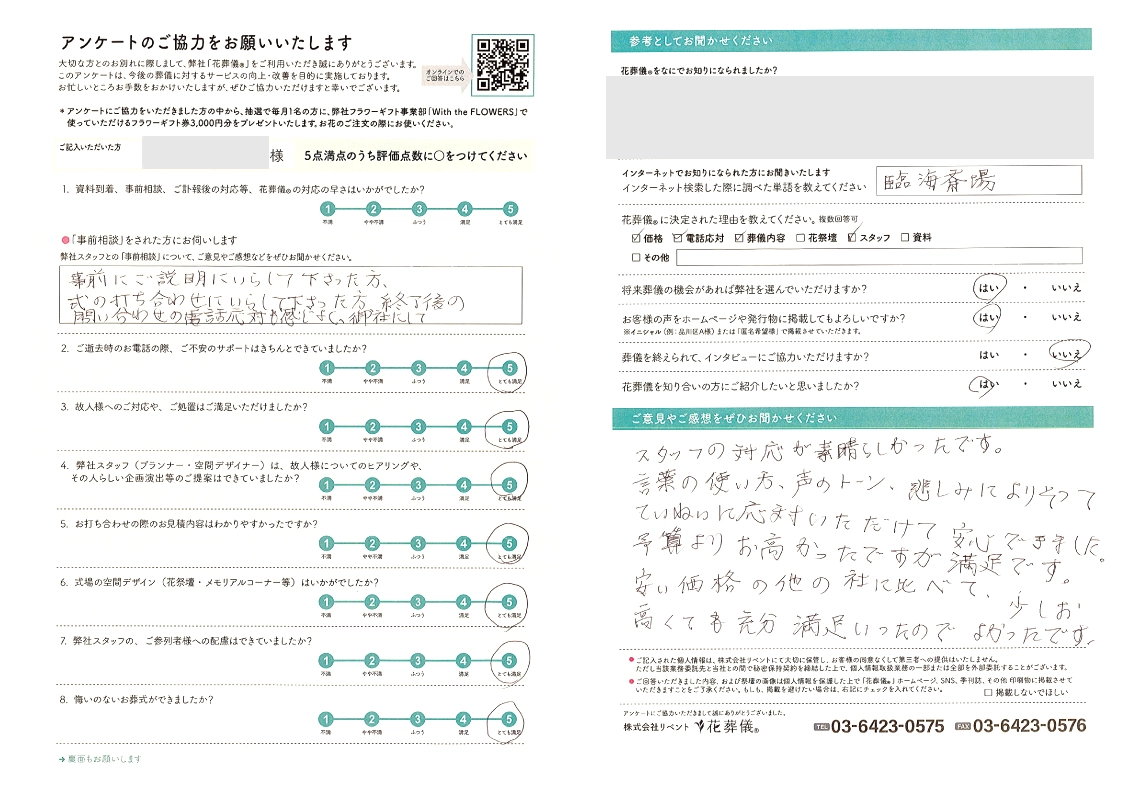 アンケートのご協力をお願いいたします
大切な方とのお別れに際しまして、弊社「花葬儀®」をご利用いただき誠にありがとうございます。
このアンケートは、今後の葬儀に対するサービスの向上・改善を目的に実施しております。
お忙しいところお手数をおかけいたしますが、ぜひご協力いただけますと幸いでございます。
オンラインでの
ご回答はこちら
* アンケートにご協力をいただきました方の中から、抽選で毎月1名の方に、弊社フラワーギフト事業部「With the FLOWERS」で
使っていただけるフラワーギフト券3,000円分をプレゼントいたします。お花のご注文の際にお使いください。
ご記入いただいた方
様
5点満点のうち評価点数に○をつけてください
1. 資料到着、事前相談、ご訃報後の対応等、花葬儀®の対応の早さはいかがでしたか?
1 2 3 4 5
不満 やや不満 ふつう 満足 とても満足
●「事前相談」をされた方にお伺いします
弊社スタッフとの「事前相談」について、ご意見やご感想などをぜひお聞かせください。
事前にご説明にいらして下さった方、
式の打ち合わせにいらして下さった方、終了後の
問い合わせの電話応対も感じよく、御社にして
2. ご逝去時のお電話の際、ご不安のサポートはきちんとできていましたか?
1 2 3 4 5
不満 やや不満 ふつう 満足 とても満足
3. 故人様へのご対応や、ご処置はご満足いただけましたか?
1 2 3 4 5
不満 やや不満 ふつう 満足 とても満足
4. 弊社スタッフ(プランナー・空間デザイナー)は、故人様についてのヒアリングや、
その人らしい企画演出等のご提案はできていましたか?
1 2 3 4 5
不満 やや不満 ふつう 満足 とても満足
5. お打ち合わせの際のお見積内容はわかりやすかったですか?
1 2 3 4 5
不満 やや不満 ふつう 満足 とても満足
6. 式場の空間デザイン(花祭壇・メモリアルコーナー等)はいかがでしたか?
1 2 3 4 5
不満 やや不満 ふつう 満足 とても満足
7. 弊社スタッフの、ご参列者様への配慮はできていましたか?
1 2 3 4 5
不満 やや不満 ふつう 満足 とても満足
8. 悔いのないお葬式ができましたか?
1 2 3 4 5
不満 やや不満 ふつう 満足 とても満足
→ 裏面もお願いします
参考としてお聞かせください
花葬儀®をなにでお知りになられましたか?
インターネットでお知りになられた方にお聞きいたします
インターネット検索した際に調べた単語を教えてください
臨海斎場
花葬儀®に決定された理由を教えてください。複数回答可
☑ 価格 ☑ 電話応対 ☑ 葬儀内容 □ 花祭壇 ☑ スタッフ □ 資料
□ その他
将来葬儀の機会があれば弊社を選んでいただけますか? はい ・ いいえ
お客様の声をホームページや発行物に掲載してもよろしいですか? はい ・ いいえ
※イニシャル(例:品川区A様)または「匿名希望様」で掲載させていただきます。
葬儀を終えられて、インタビューにご協力いただけますか? はい ・ いいえ
花葬儀を知り合いの方にご紹介したいと思いましたか? はい ・ いいえ
ご意見やご感想をぜひお聞かせください
スタッフの対応が素晴らしかったです。
言葉の使い方、声のトーン、悲しみによりそって
ていねいに応対いただけて安心できました。
予算よりお高かったですが満足です。
安い価格の他の社に比べて、少しお
高くても充分満足いったのでよかったです。
● ご記入された個人情報は、株式会社リベントにて大切に保管し、お客様の同意なくして第三者への提供はいたしません。
ただし当該業務委託先と当社との間で秘密保持契約を締結した上で、個人情報取扱業務の一部または全部を外部委託することがございます。
● ご回答いただきました内容、および祭壇の画像は個人情報を保護した上で「花葬儀®」ホームページ、SNS、季刊誌、その他 印刷物に掲載させて
いただきますことをご了承ください。もしも、掲載を避けたい場合は、右記にチェックを入れてください。
□ 掲載しないでほしい
アンケートにご協力いただきまして誠にありがとうございました。
株式会社リベント 花葬儀® TEL 03-6423-0575 FAX 03-6423-0576